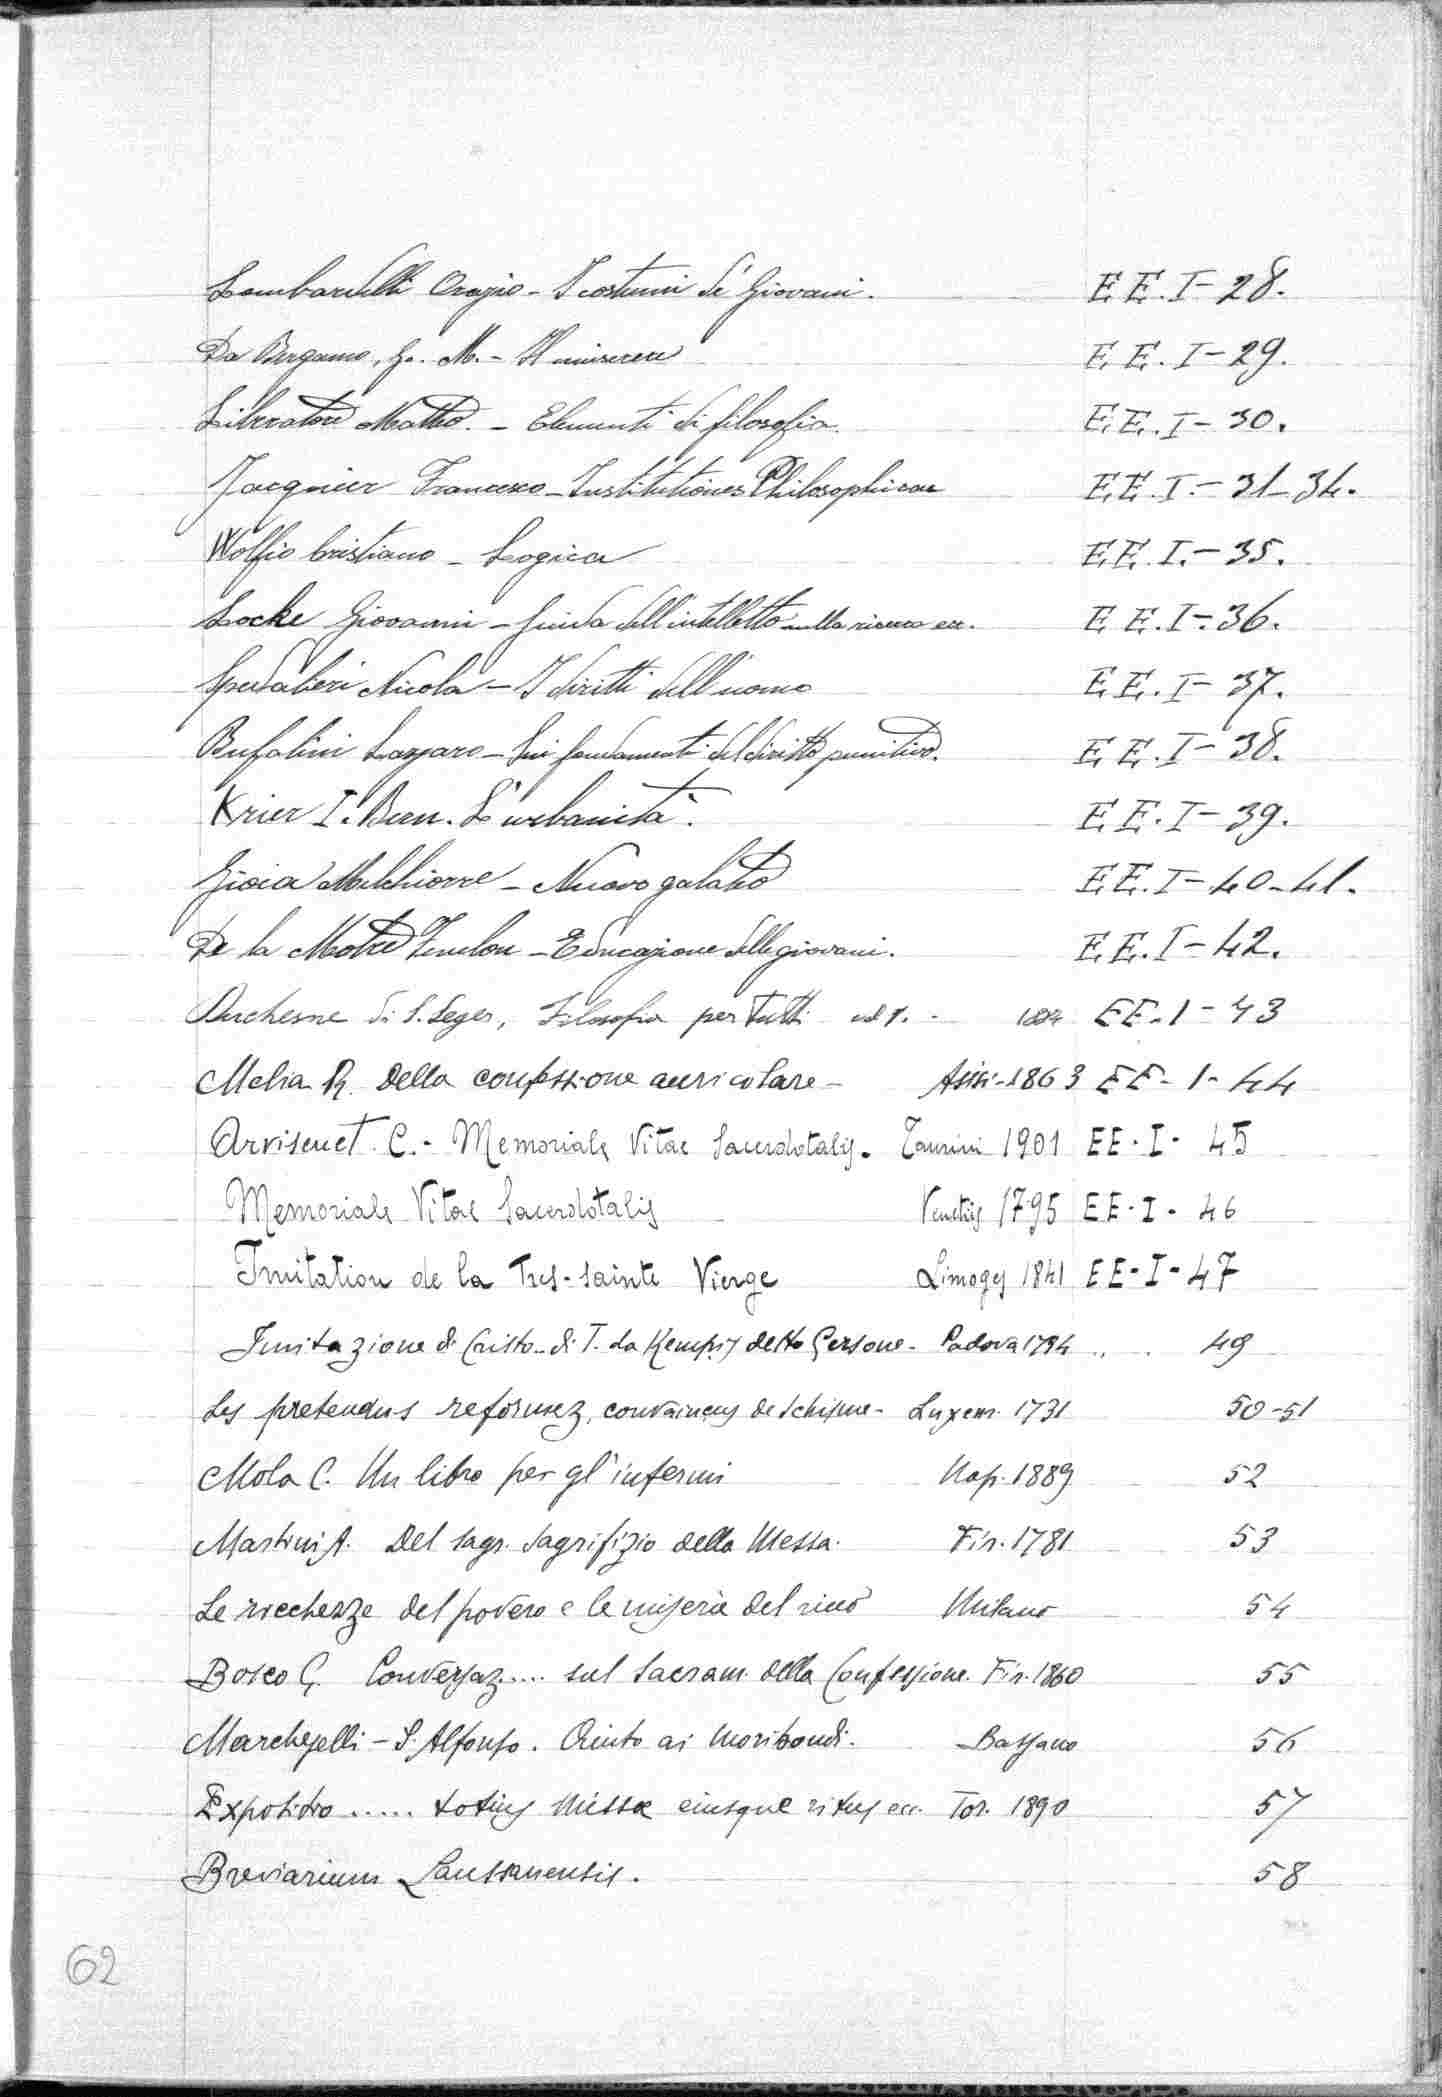 Lombardelli Orazio - I costumi de' Giovani. E E. I - 28.
Da Bergamo, G. M. - Il miserere E E. I - 29.
Liberatore Matteo. - Elementi di filosofia. E E. I - 30.
Jacquier Francesco - Institutiones Philosophicae E E. I. - 31-34.
Wolfio Cristiano - Logica E E. I. - 35.
Locke Giovanni - Guida dell'intelletto nella ricerca ecc. E E. I - 36.
Spedalieri Nicola - I diritti dell'uomo E E. I - 37.
Bufalini Lazzaro - Sui fondamenti del diritto punitivo. E E. I - 38.
Krier I. Bern. L'urbanità. E E. I - 39.
Gioia Melchiorre - Nuovo galateo E E. I - 40-41.
De la Motte Fenelon - Educazione delle giovani. E E. I - 42.
Duchesne di S. Leger, Filosofia per tutti vol 1. - EE. I - 43
Melia R. Della confessione auricolare - Assisi - 1863 EE - I - 44
Arvisenet C. - Memoriale Vitae Sacerdotalis. Taurini 1901 EE - I - 45
Memoriale Vitae Sacerdotalis Venetiis 1795 EE - I - 46
Imitation de la Tres-sainte Vierge Limoges 1841 EE - I - 47
Imitazione di Cristo - di T. da Kempis detto Gersone - Padova 1794 .. . 49
Les pretendus reformez, convaincus de schisme - Luxem. 1731 50-51
Mola C. Un libro per gl'infermi Nap. 1889 52
Martini A. Del sagr. sagrifizio della Messa. Fir. 1781 53
Le ricchezze del povero e le miserie del ricco Milano 54
Bosco G. Conversaz.... sul sacram. della Confessione. Fir. 1860 55
Marcheselli - S. Alfonso. Aiuto ai moribondi. Bassano 56
Expositio ..... totius Missae eiusque ritus ecc. Tor. 1890 57
Breviarium Lausanensis. 58
62